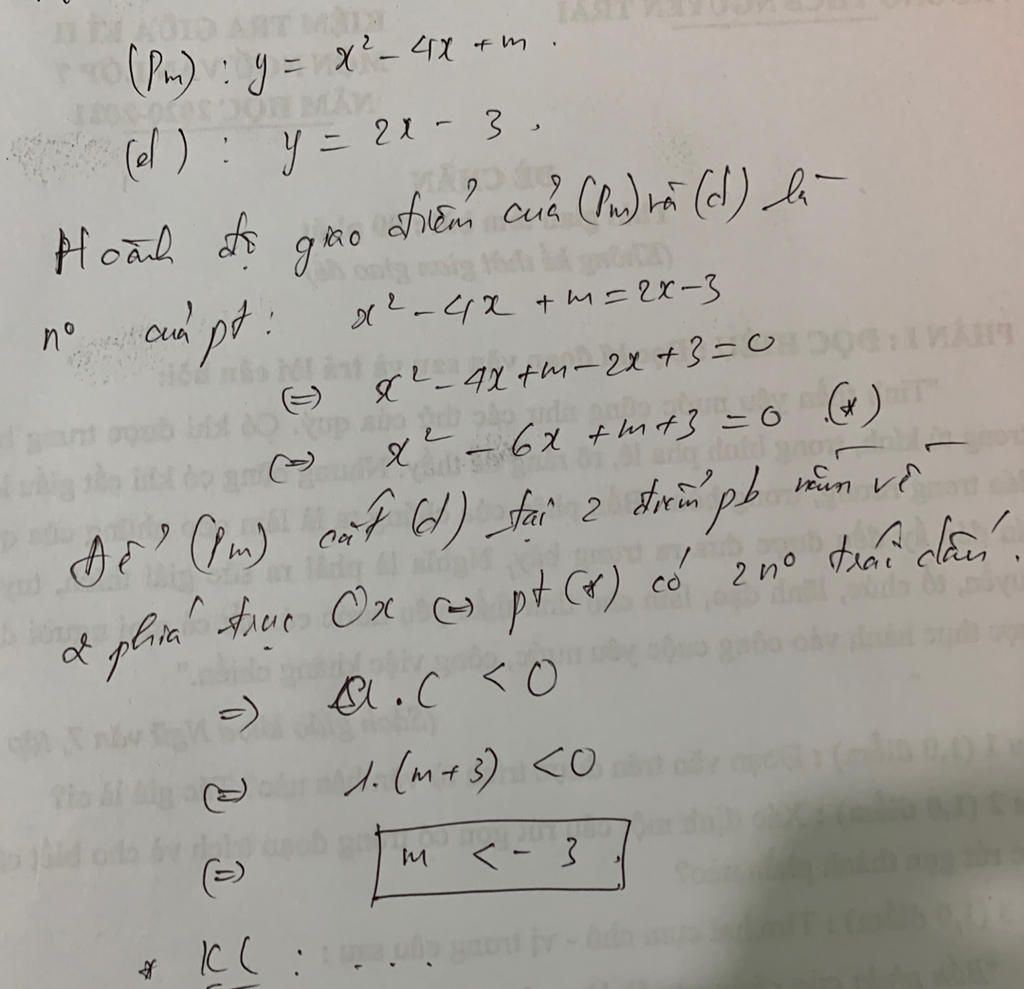 (Pm) : y = x² - 4x + m .
(d) : y = 2x - 3 .
Hoành độ giao điểm của (Pm) và (d) là
nº của pt : x² - 4x + m = 2x - 3
(=) x² - 4x + m - 2x + 3 = 0
(=) x² - 6x + m + 3 = 0 (*)
Để (Pm) cắt (d) tại 2 điểm pb nằm về
2 phía trục Ox (=) pt (*) có 2 nº trái dấu .
=) a . c < 0
(=) 1. (m + 3) < 0
(=) m < - 3 .
* KL : . . .